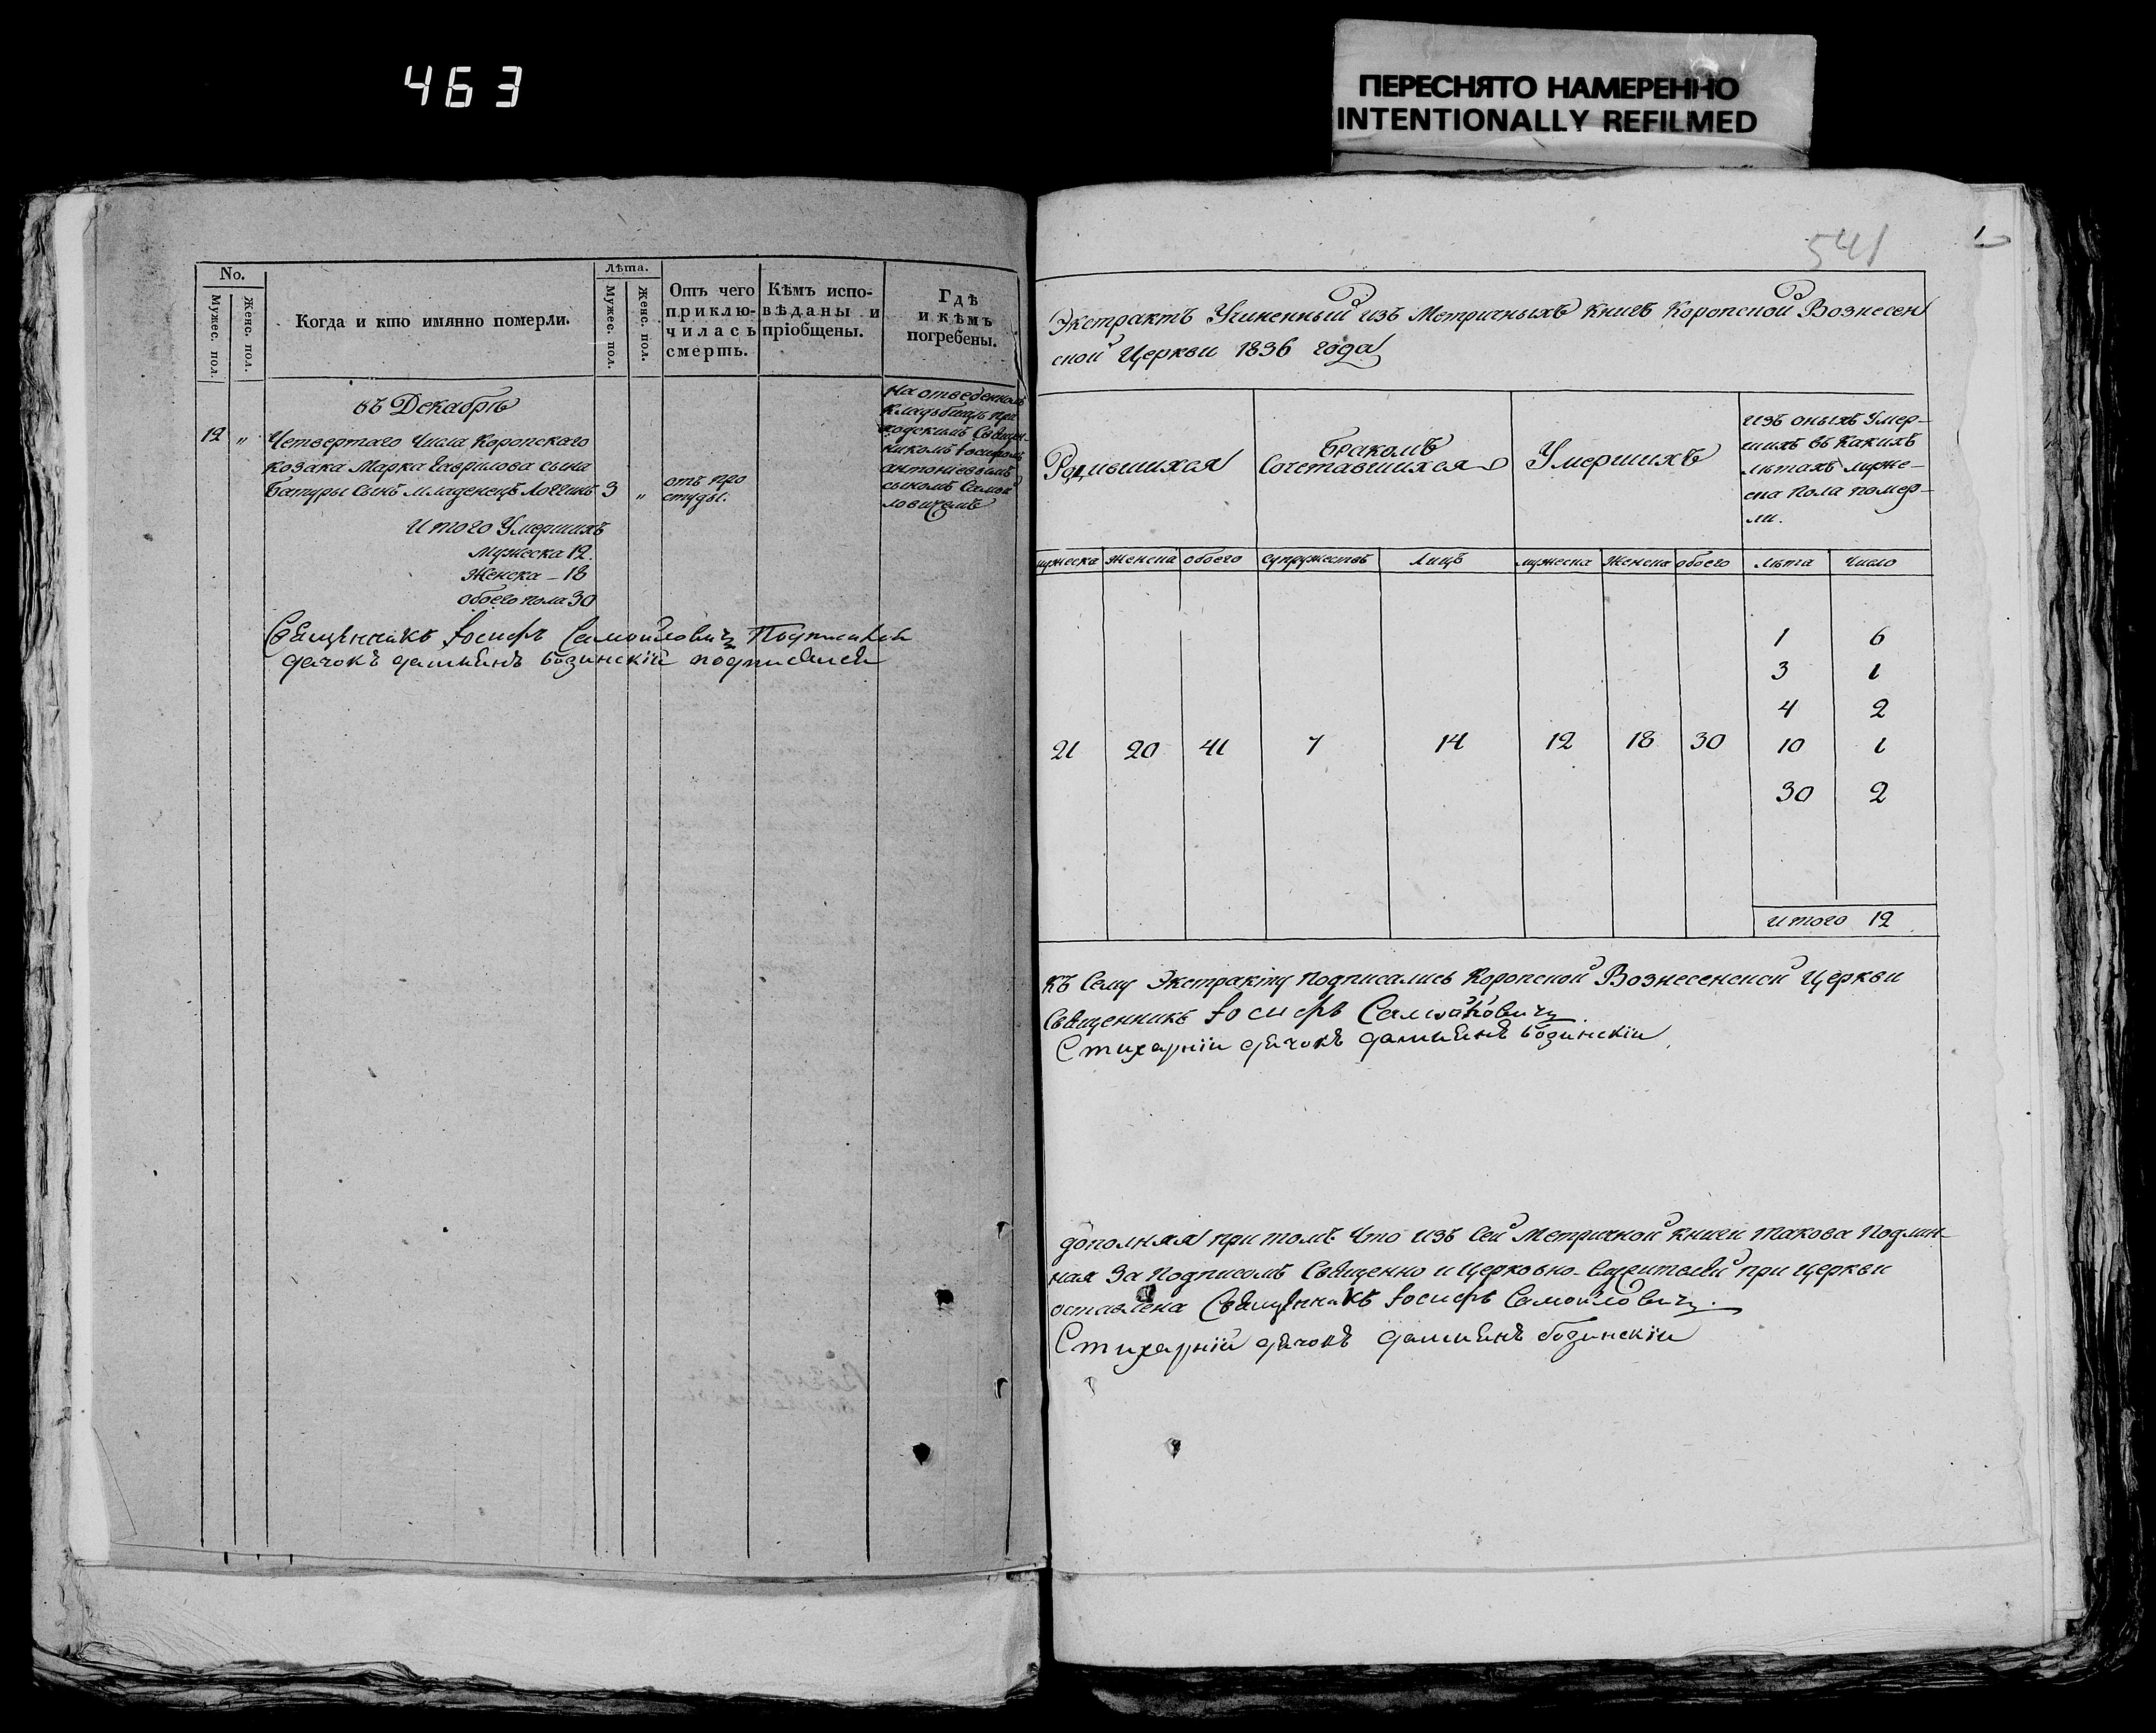 463
ПЕРЕСНЯТО НАМЕРЕННО
INTENTIONALLY REFILMED
No.
Мужес. пол.
Женс. пол.
Когда и кто имянно померли.
Лѣта.
Мужес. пол.
Женс. пол.
Отъ чего
приклю-
чилась
смерть.
Кѣмъ испо-
вѣданы и
пріобщены.
Гдѣ
и кѣмъ
погребены.
въ Декабрѣ
12 „ Четвертаго Числа Коропскаго
козака Марка Гаврилова сына
Батуры Сынъ младенецъ Логгинъ 3 „
отъ про
студы.
на отведенномъ
кладбищѣ при
ходскимъ Священ-
никомъ Іосифомъ
антоніевымъ
сыномъ Самой
ловичемъ
Итого Умершихъ
мужеска 12.
Женска – 18
обоего пола 30
Священникъ Іосифъ Самойловичъ Подписался
дячокъ даміанъ бозинскій подписался
541
Экстрактъ Учиненный изъ Метричныхъ книгъ Коропской Вознесен
ской Церкви 1836 года
Родившихся
Бракомъ
Сочетавшихся
Умершихъ
изъ оныхъ Умер-
шихъ въ какихъ
лѣтахъ муже-
ска пола помер-
ли.
мужеска женска обоего супружествъ Лицъ мужеска Женска обоего лѣта число
1 6
3 1
4 2
21 20 41 7 14 12 18 30 10 1
30 2
итого 12
къ Сему Экстракту подписались Коропской Вознесенской Церкви
Священникъ Іосифъ Самойловичъ
Стихарній дячокъ даміанъ бозинскій
дополняя при томъ что изъ сей Метричной книги такова Подлин-
ная За Подписомъ Священно и Церковно-Служителей при церкви
оставлена Священникъ Іосифъ Самойловичъ.
Стихарній дячокъ даміанъ бозинскій